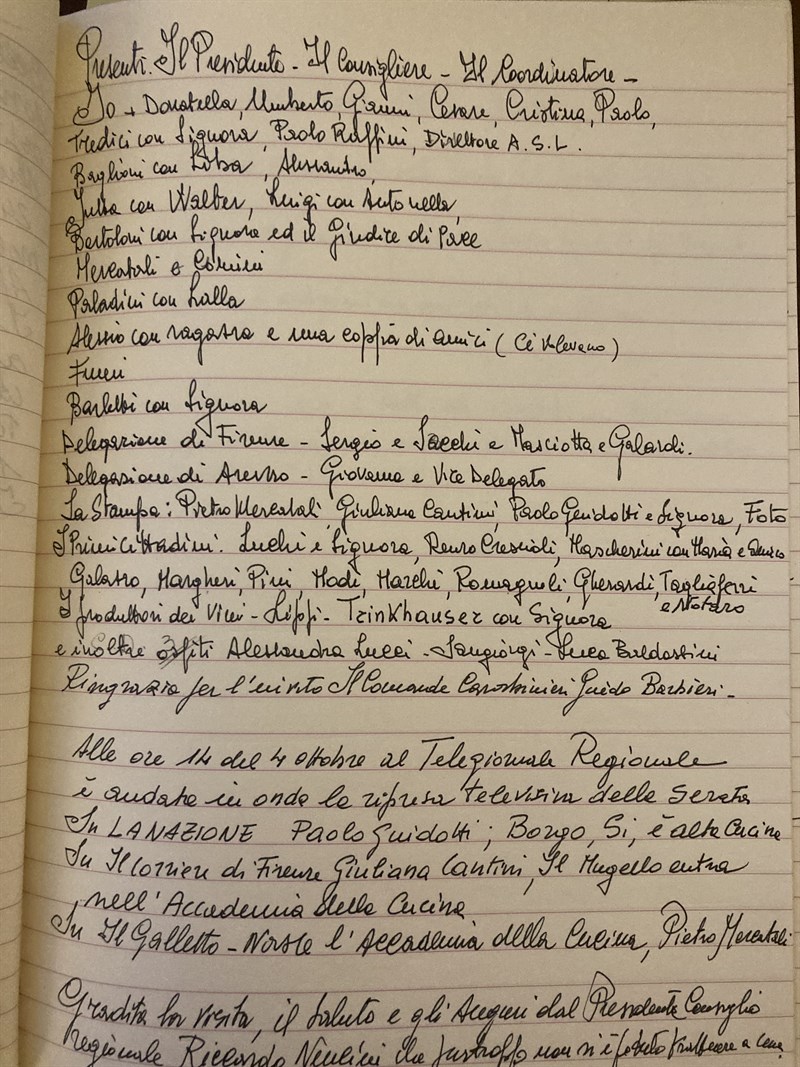 Presenti. Il Presidente - Il Consigliere - Il Coordinatore -
Io + Donatella, Umberto, Gianni, Cesare, Cristina, Paolo,
Tredici con Signora, Paolo Ruffini, Direttore A.S.L.
Baglioni con, Alessandro,
con Walter, Luigi con Antonella,
Bartoloni con Signora ed il Giudice di Pace
Mercatali e
Paladini con Lalla
Alessio con ragazza e una coppia di amici (Ci volevano)
Barletti con Signora
Delegazione di Firenze - Sergio e Sacchi e Masciotta e Galardi.
Delegazione di Arezzo - Giovanna e Vice Delegato
La Stampa: Pietro Mercatali Giuliana Cantini, Paolo Guidotti e Signora, Foto
I Primi Cittadini. Luchi e Signora, Renzo, Mascherini con Maria e Enrico
Galastro, Margheri, Pini, Modi, Marchi, Romagnoli, Gherardi, Tagliaferri
e Notaro
I produttori dei Vini - Lippi - Trinkhauser con Signora
e inoltre ospiti Alessandra Lucci - Sangiorgi - Luca Baldassini
Ringrazia per l'invito Il Comand.te Carabinieri Guido Barbieri -
Alle ore 14 del 4 ottobre al Telegiornale Regionale
è andata in onda la ripresa televisiva della serata
In LA NAZIONE Paolo Guidotti; Borgo, Si, è alta Cucina
In Il Corriere di Firenze Giuliana Cantini, Il Mugello entra
nell'Accademia della Cucina
In Il Galletto - Nasce l'Accademia della Cucina, Pietro Mercatali
Gradita la visita, il saluto e gli Auguri dal Presidente Consiglio
regionale Riccardo Nencini che purtroppo non si è potuto trattenere a cena